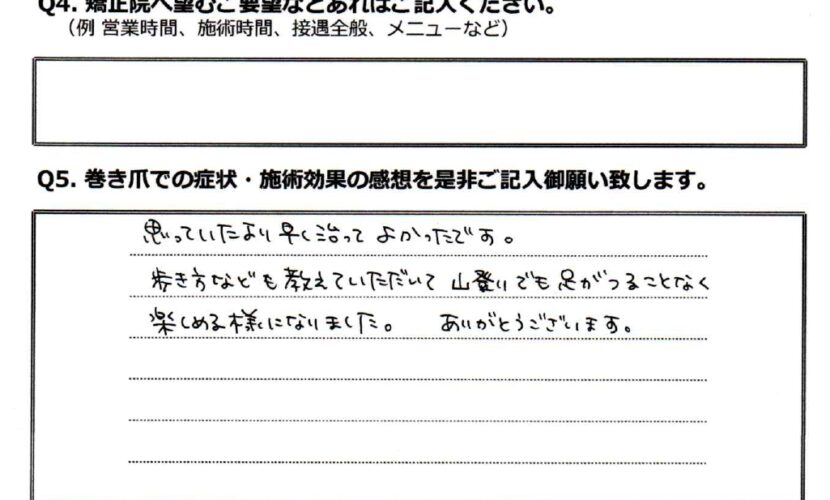 Q4. 矯正院へ望むご要望などあればご記入ください。
（例 営業時間、施術時間、接遇全般、メニューなど）
Q5. 巻き爪での症状・施術効果の感想を是非ご記入御願い致します。
思っていたより早く治ってよかったです。
歩き方なども教えていただいて山登りでも足がつることなく
楽しめる様になりました。 ありがとうございます。